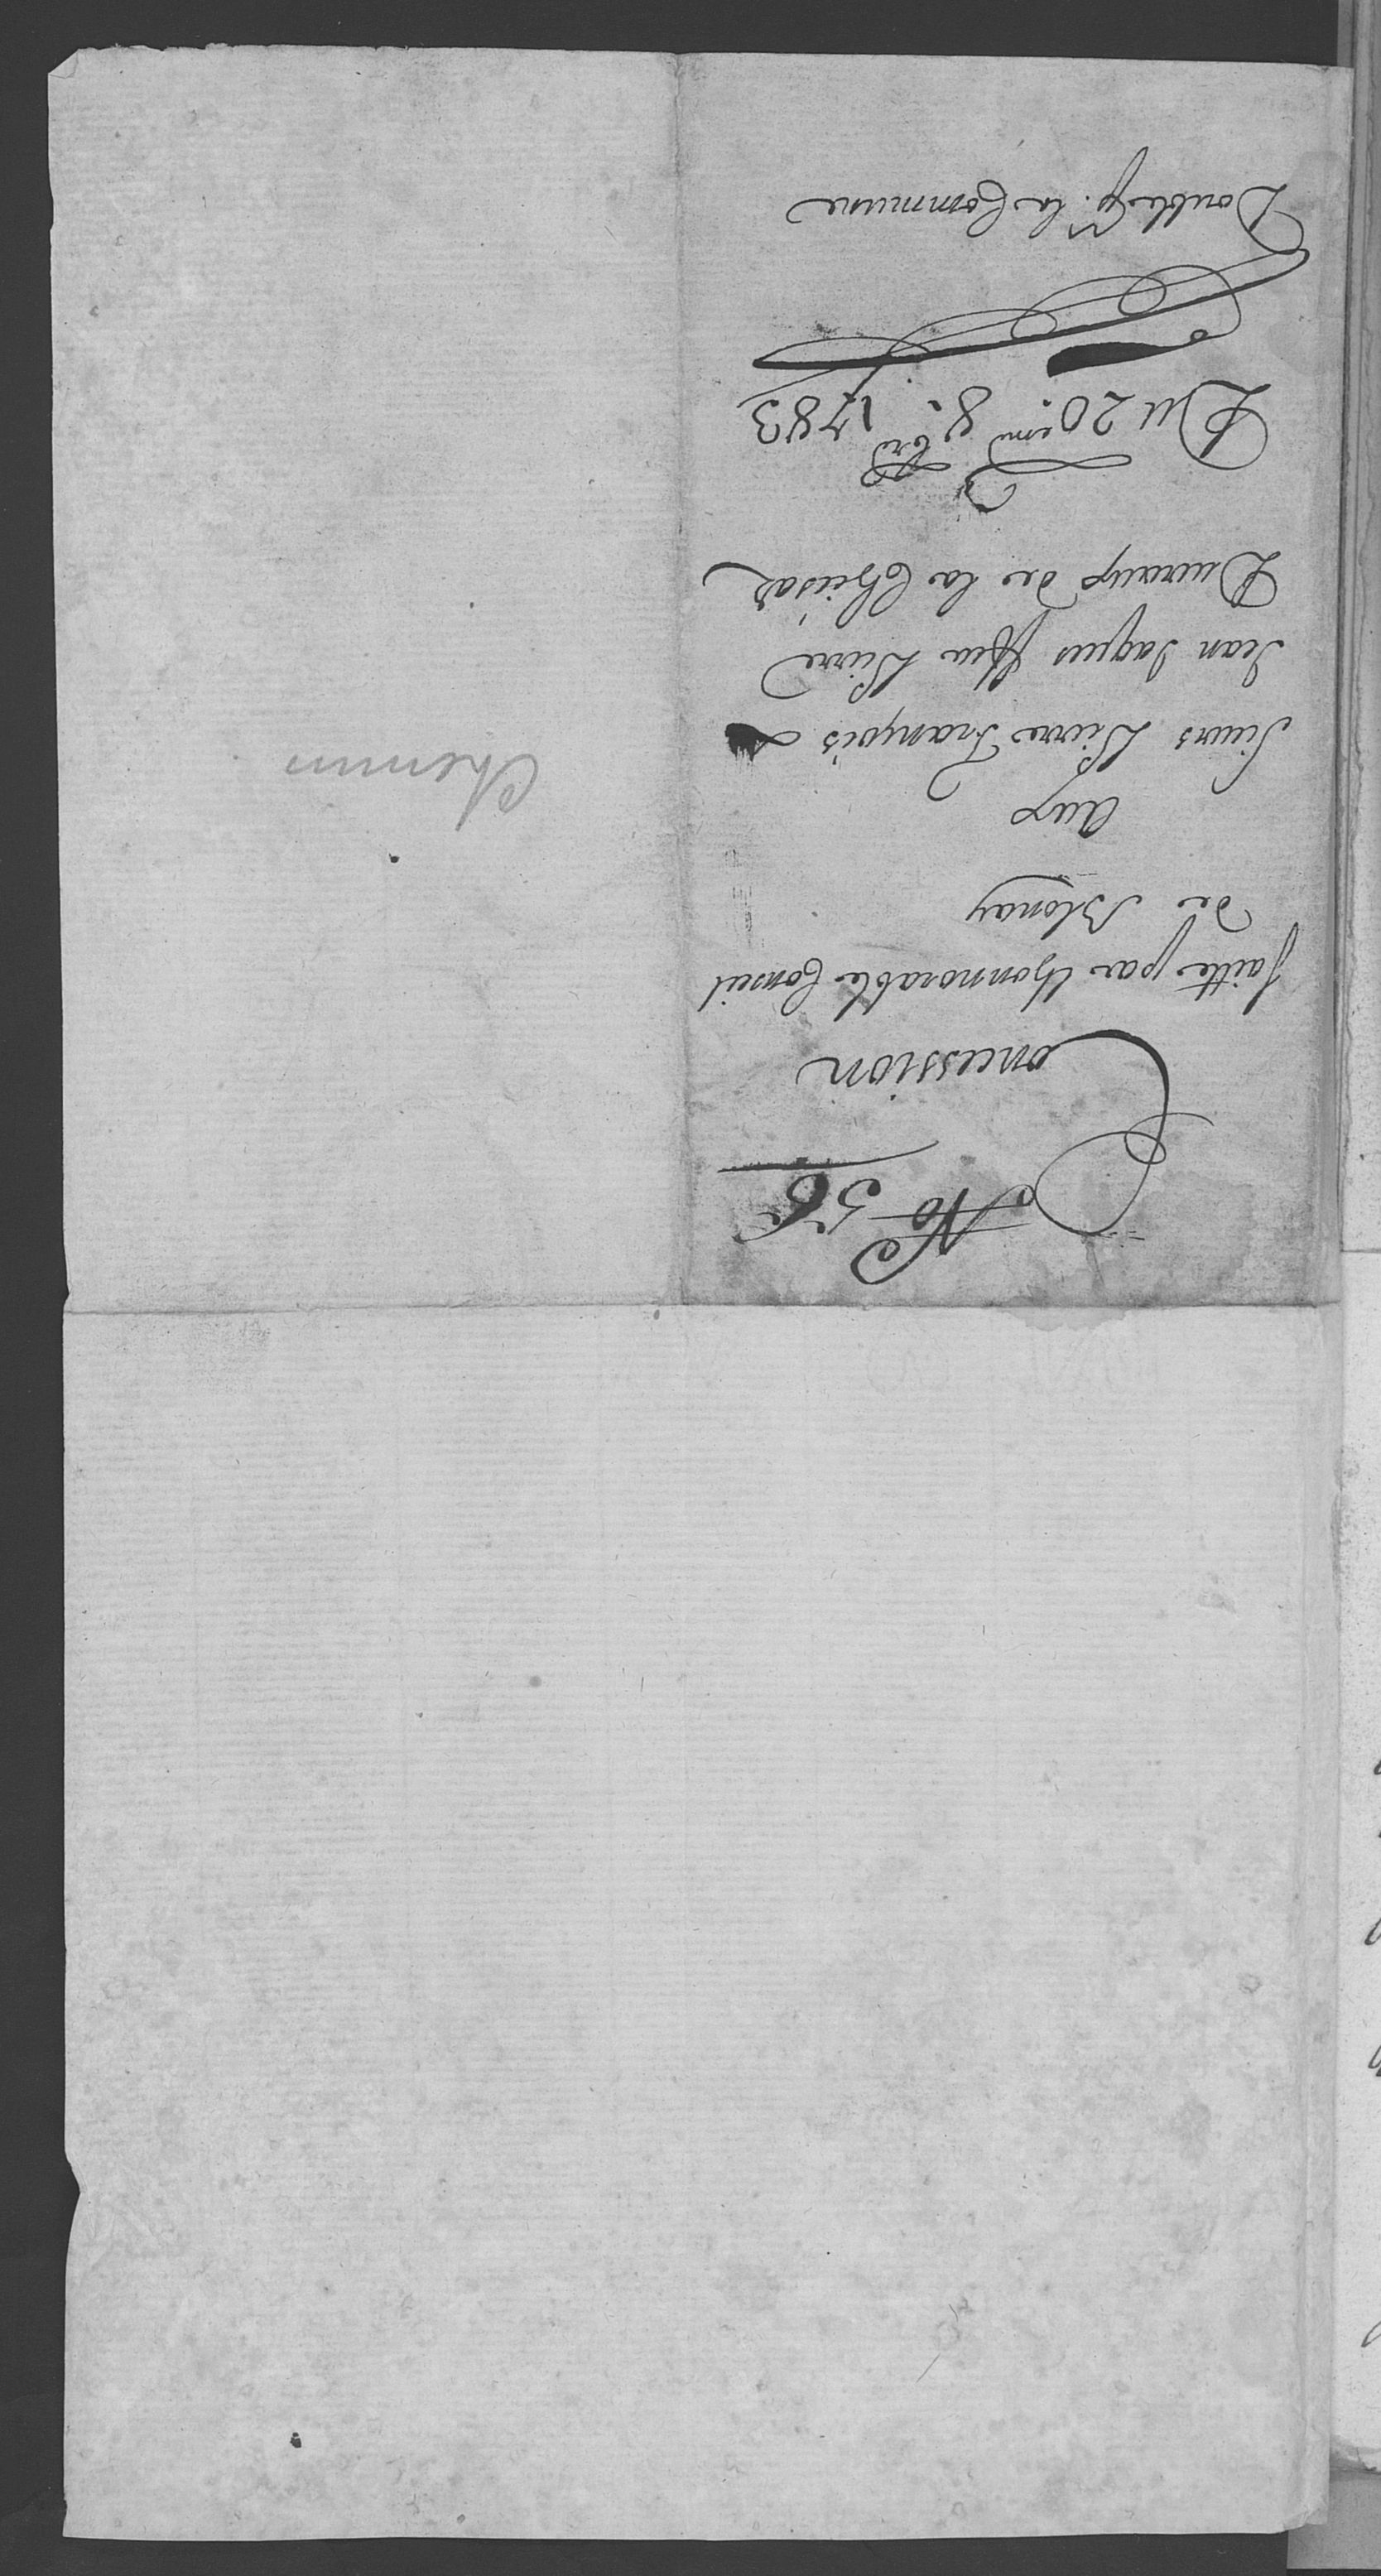 No 56
Concession
faitte par Lhonnorable Conseil
de Blonay
aux
Sieurs Pierre François &
Jean Jaques ffeu Pierre
Ducraux de la Chiésaz
Du 20.em 8.bre 1783
Double p.r la Commune
Chemins